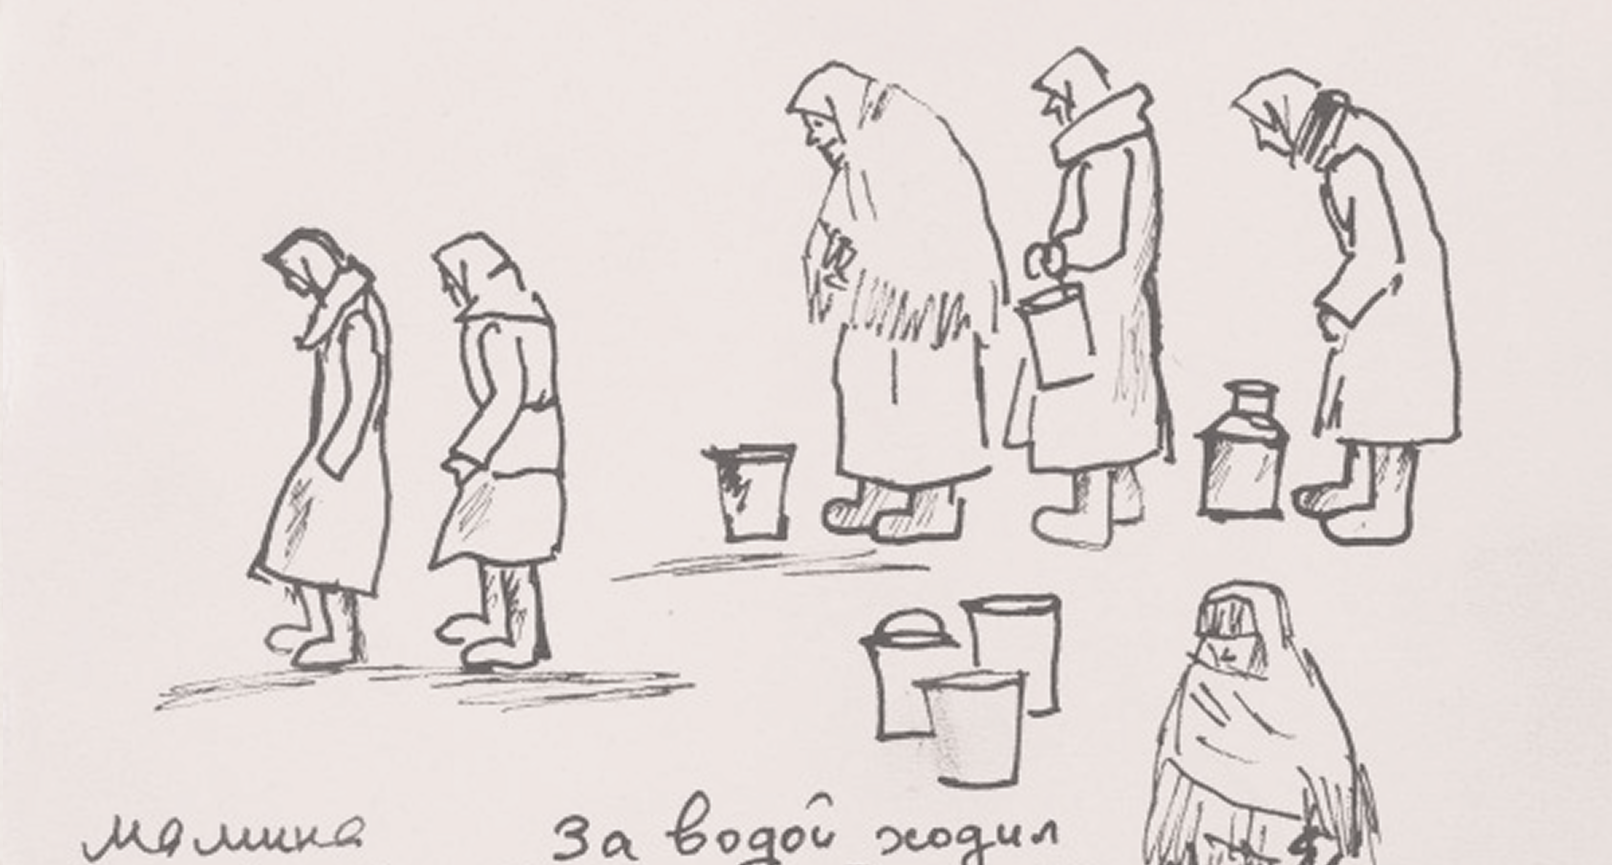 мамина За водой ходил